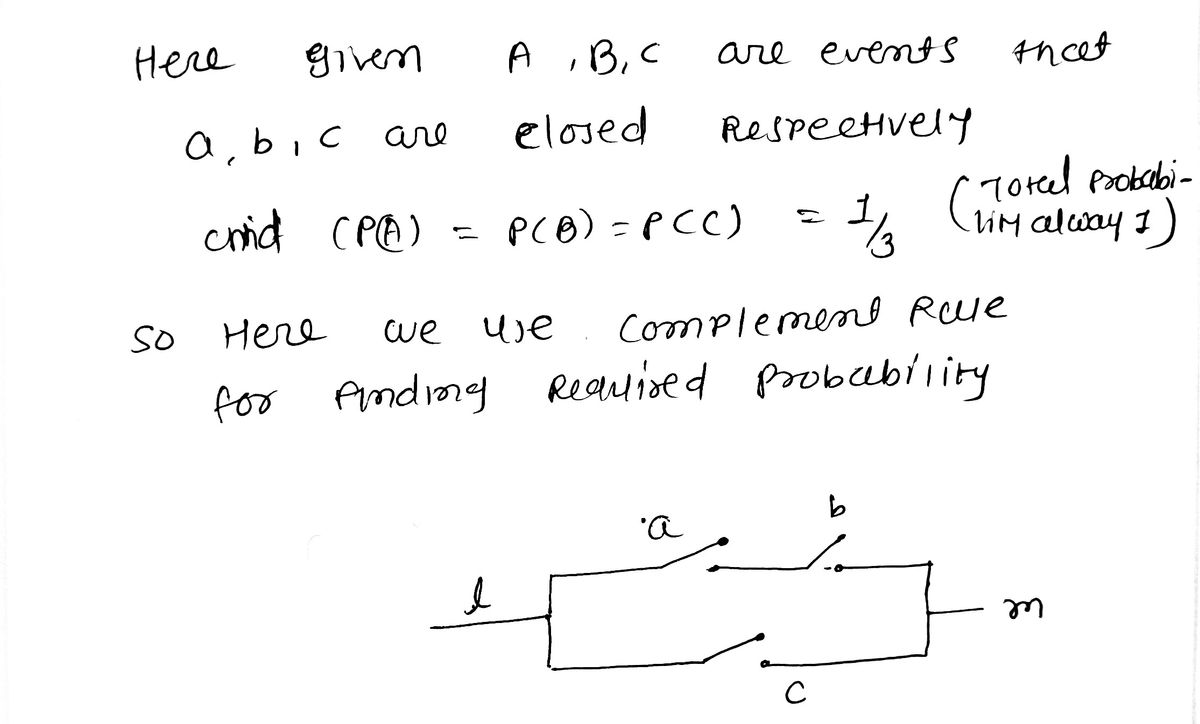 Here given A, B, C are events that
a, b, c are closed Respectively
and (P(A) = P(B) = P(C) = 1/3 (Total Probabi-
lity alway 1)
So Here we use Complement Rule
for finding Required Probability
a b
l m
c